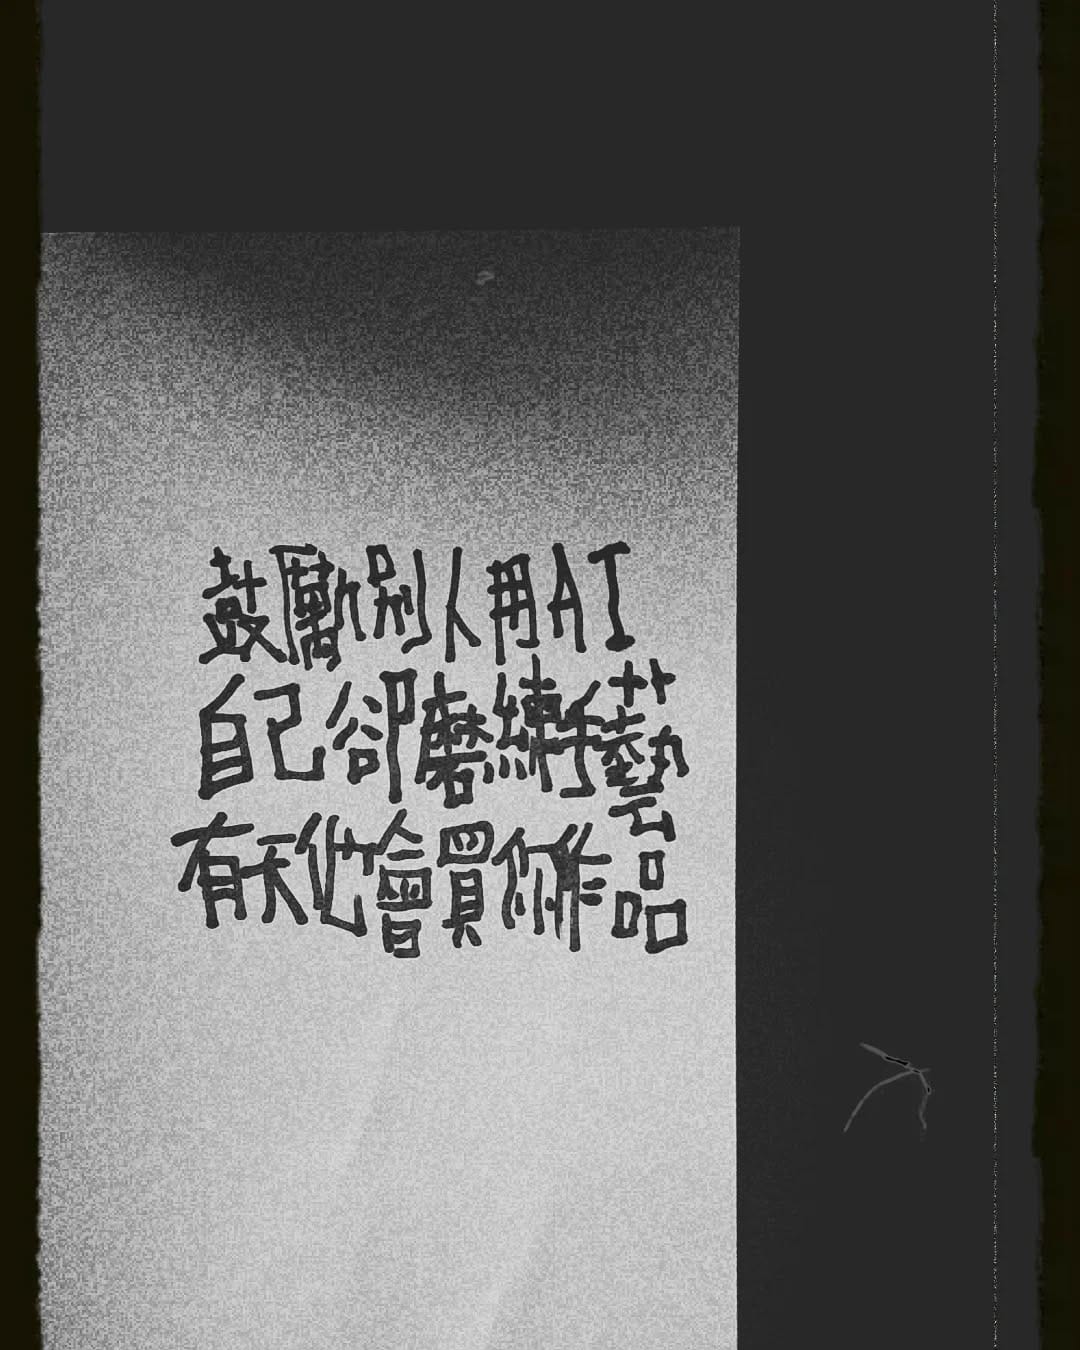 鼓勵別人用AI
自己卻磨練手藝
有天他會買你作品